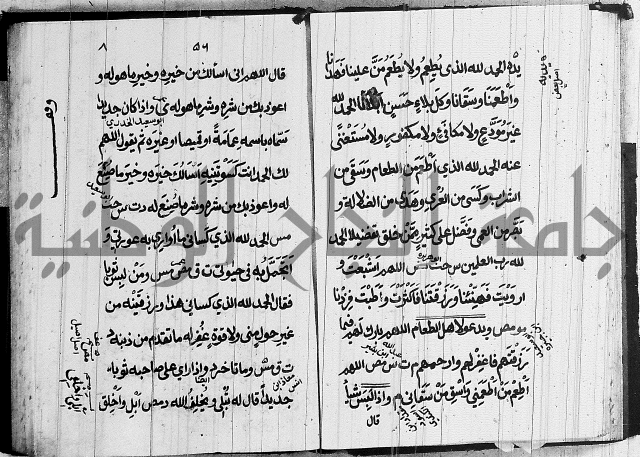 يده الحمد لله الذي يطعم ولا يطعم من علينا فهدانا
وأطعمنا وسقانا وكل بلاء حسن أبلانا الحمد لله
غير مودع ولا مكافئ ولا مكفور ولا مستغنى
عنه الحمد لله الذي أطعم من الطعام وسقى من
الشراب وكسى من العري وهدى من الضلالة و
بصر من العمى وفضل على كثير ممن خلق تفضيلا الحمد
لله رب العلمين س حب مس اللهم اشبعت و
ارويت فهنئنا ورزقتنا فاكثرت واطبت فزدنا
مو مص ويدعو لاهل الطعام اللهم بارك لهم فيما
رزقتهم فاغفر لهم وارحمهم م ت س مص اللهم
اطعم من اطعمني واسق من سقاني م واذا لبس شيأ
قال
٥٦
٨
قال اللهم اني اسألك من خيره وخير ما هو له و
اعوذ بك من شره وشر ما هو له ى واذا كان جديدا
ابو سعيد الخدري
سماه باسمه عمامة او قميصا او غيره ثم يقول اللهم
لك الحمد انت كسوتنيه اسألك خيره وخير ما صنع
له واعوذ بك من شره وشر ما صنع له د ت س حب
مس الحمد لله الذي كساني ما أواري به عورتي و
اتجمل به في حيوتي ت ق مص مس ومن لبس ثوبا
فقال الحمد لله الذي كساني هذا ورزقنيه من
غير حول مني ولا قوة غفر له ما تقدم من ذنبه د
ت ق مس وما تأخر د واذا راى على صاحبه ثوبا
جديدا قال له تبلى ويخلف الله د مص ابل واخلق
وقف